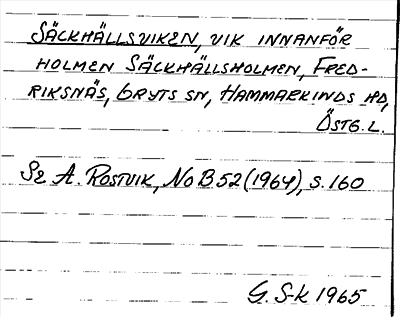 SÄCKHÄLLSVIKEN, VIK INNANFÖR
HOLMEN SÄCKHÄLLSHOLMEN, FRED-
RIKSNÄS, GRYTS SN, HAMMARKINDS HD,
ÖSTG. L.
Se A. ROSTVIK, NoB 52 (1964), S. 160
G. S-k 1965